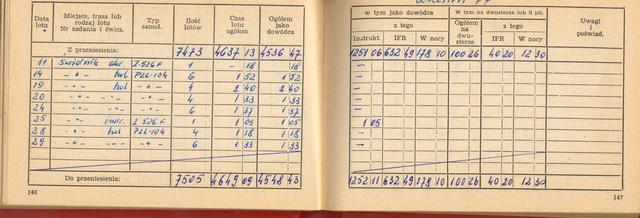 Data lotu | Miejsce, trasa lub rodzaj lotu Nr zadania i ćwicz. | Typ samol. | Ilość lotów | Czas lotu ogółem | Ogółem jako dowódca
w tym jako dowódca | W tym na dwusterze lub II pil. | Uwagi i poświad.
z tego | Ogółem na dwusterze | z tego
Instrukt. | IFR | W nocy | IFR | W nocy
Z przeniesienia: | 7473 | 4637 13 | 4536 47 | 1251 06 | 632 49 | 178 10 | 100 26 | 40 20 | 12 30
11 | Świdnik | Z-526F | 1 | - 18 | - 18 | -
14 | -"- hol | PZL-104 | 6 | 1 52 | 1 52 | -
19 | -"- hol | -"- | 4 | 2 40 | 2 40 | -
20 | -"- -"- | -"- | 4 | 1 33 | 1 33 | -
24 | -"- -"- | -"- | 6 | 1 37 | 1 37 | -
25 | -"- instr. | Z 526 F | 1 | 1 05 | 1 05 | 1 05
28 | -"- hol | PZL-104 | 4 | 1 18 | 1 18 | -
29 | -"- -"- | -"- | 6 | 1 33 | 1 33 | -
Do przeniesienia: | 7505 | 4649 09 | 4548 43 | 1252 11 | 632 49 | 178 10 | 100 26 | 40 20 | 12 30
146
147